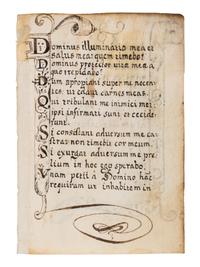 Dominus illuminatio mea et
salus mea: quem timebo?
Dominus protector vitæ meæ a
quo trepidabo?
Dum apropiant super me nocen-
tes: ut edant carnes meas.
Qui tribulant me inimici mei:
ipsi infirmati sunt et cecide-
runt.
Si consistant adversum me ca-
stra: non timebit cor meum.
Si exurgat adversum me pre-
lium in hoc ego sperabo.
Vnam petii a Domino hãc
requiram ut inhabitem in